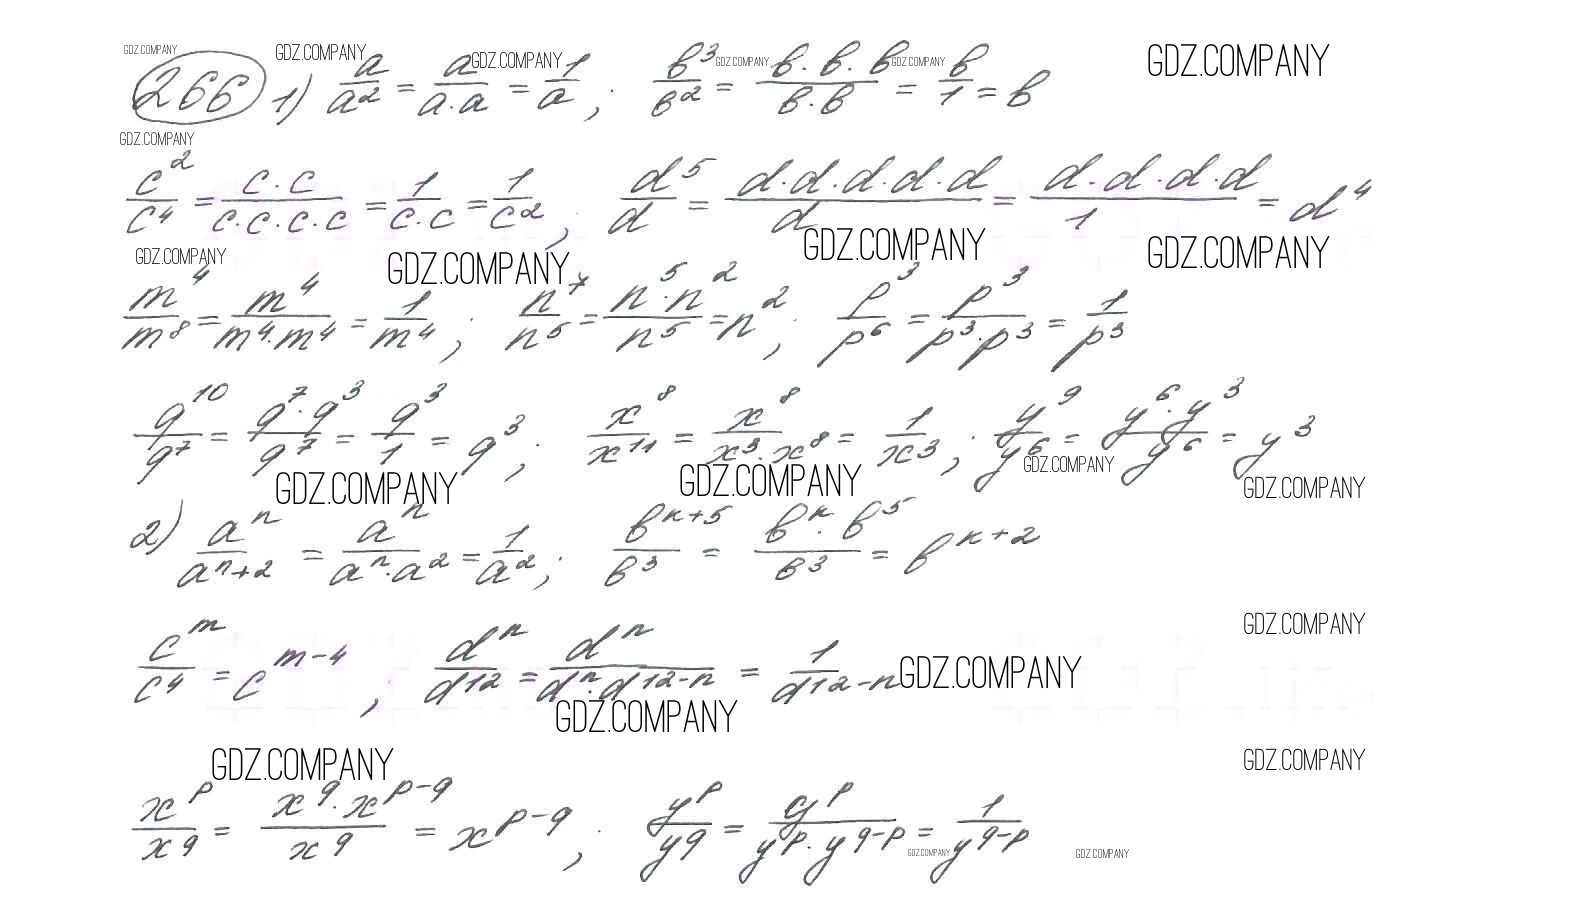 GDZ.COMPANY GDZ.COMPANY GDZ.COMPANY GDZ.COMPANY GDZ.COMPANY GDZ.COMPANY
266 1) a/a² = a/(a·a) = 1/a ; в³/в² = (в·в·в)/(в·в) = в/1 = в
GDZ.COMPANY
c²/c⁴ = (c·c)/(c·c·c·c) = 1/(c·c) = 1/c² ; d⁵/d = (d·d·d·d·d)/d = (d·d·d·d)/1 = d⁴
GDZ.COMPANY GDZ.COMPANY GDZ.COMPANY GDZ.COMPANY
m⁴/m⁸ = m⁴/(m⁴·m⁴) = 1/m⁴ ; n⁷/n⁵ = (n⁵·n²)/n⁵ = n² ; p³/p⁶ = p³/(p³·p³) = 1/p³
q¹⁰/q⁷ = (q⁷·q³)/q⁷ = q³/1 = q³ ; x⁸/x¹¹ = x⁸/(x³·x⁸) = 1/x³ ; y⁹/y⁶ = (y⁶·y³)/y⁶ = y³
GDZ.COMPANY GDZ.COMPANY GDZ.COMPANY GDZ.COMPANY
2) aⁿ/aⁿ⁺² = aⁿ/(aⁿ·a²) = 1/a² ; в^(к+5)/в³ = (в^к·в⁵)/в³ = в^(к+2)
GDZ.COMPANY
c^m/c⁴ = c^(m-4) ; dⁿ/d¹² = dⁿ/(dⁿ·d^(12-n)) = 1/d^(12-n)
GDZ.COMPANY
GDZ.COMPANY
GDZ.COMPANY GDZ.COMPANY
x^p/x^q = (x^q·x^(p-q))/x^q = x^(p-q) ; y^p/y^q = y^p/(y^p·y^(q-p)) = 1/y^(q-p)
GDZ.COMPANY GDZ.COMPANY